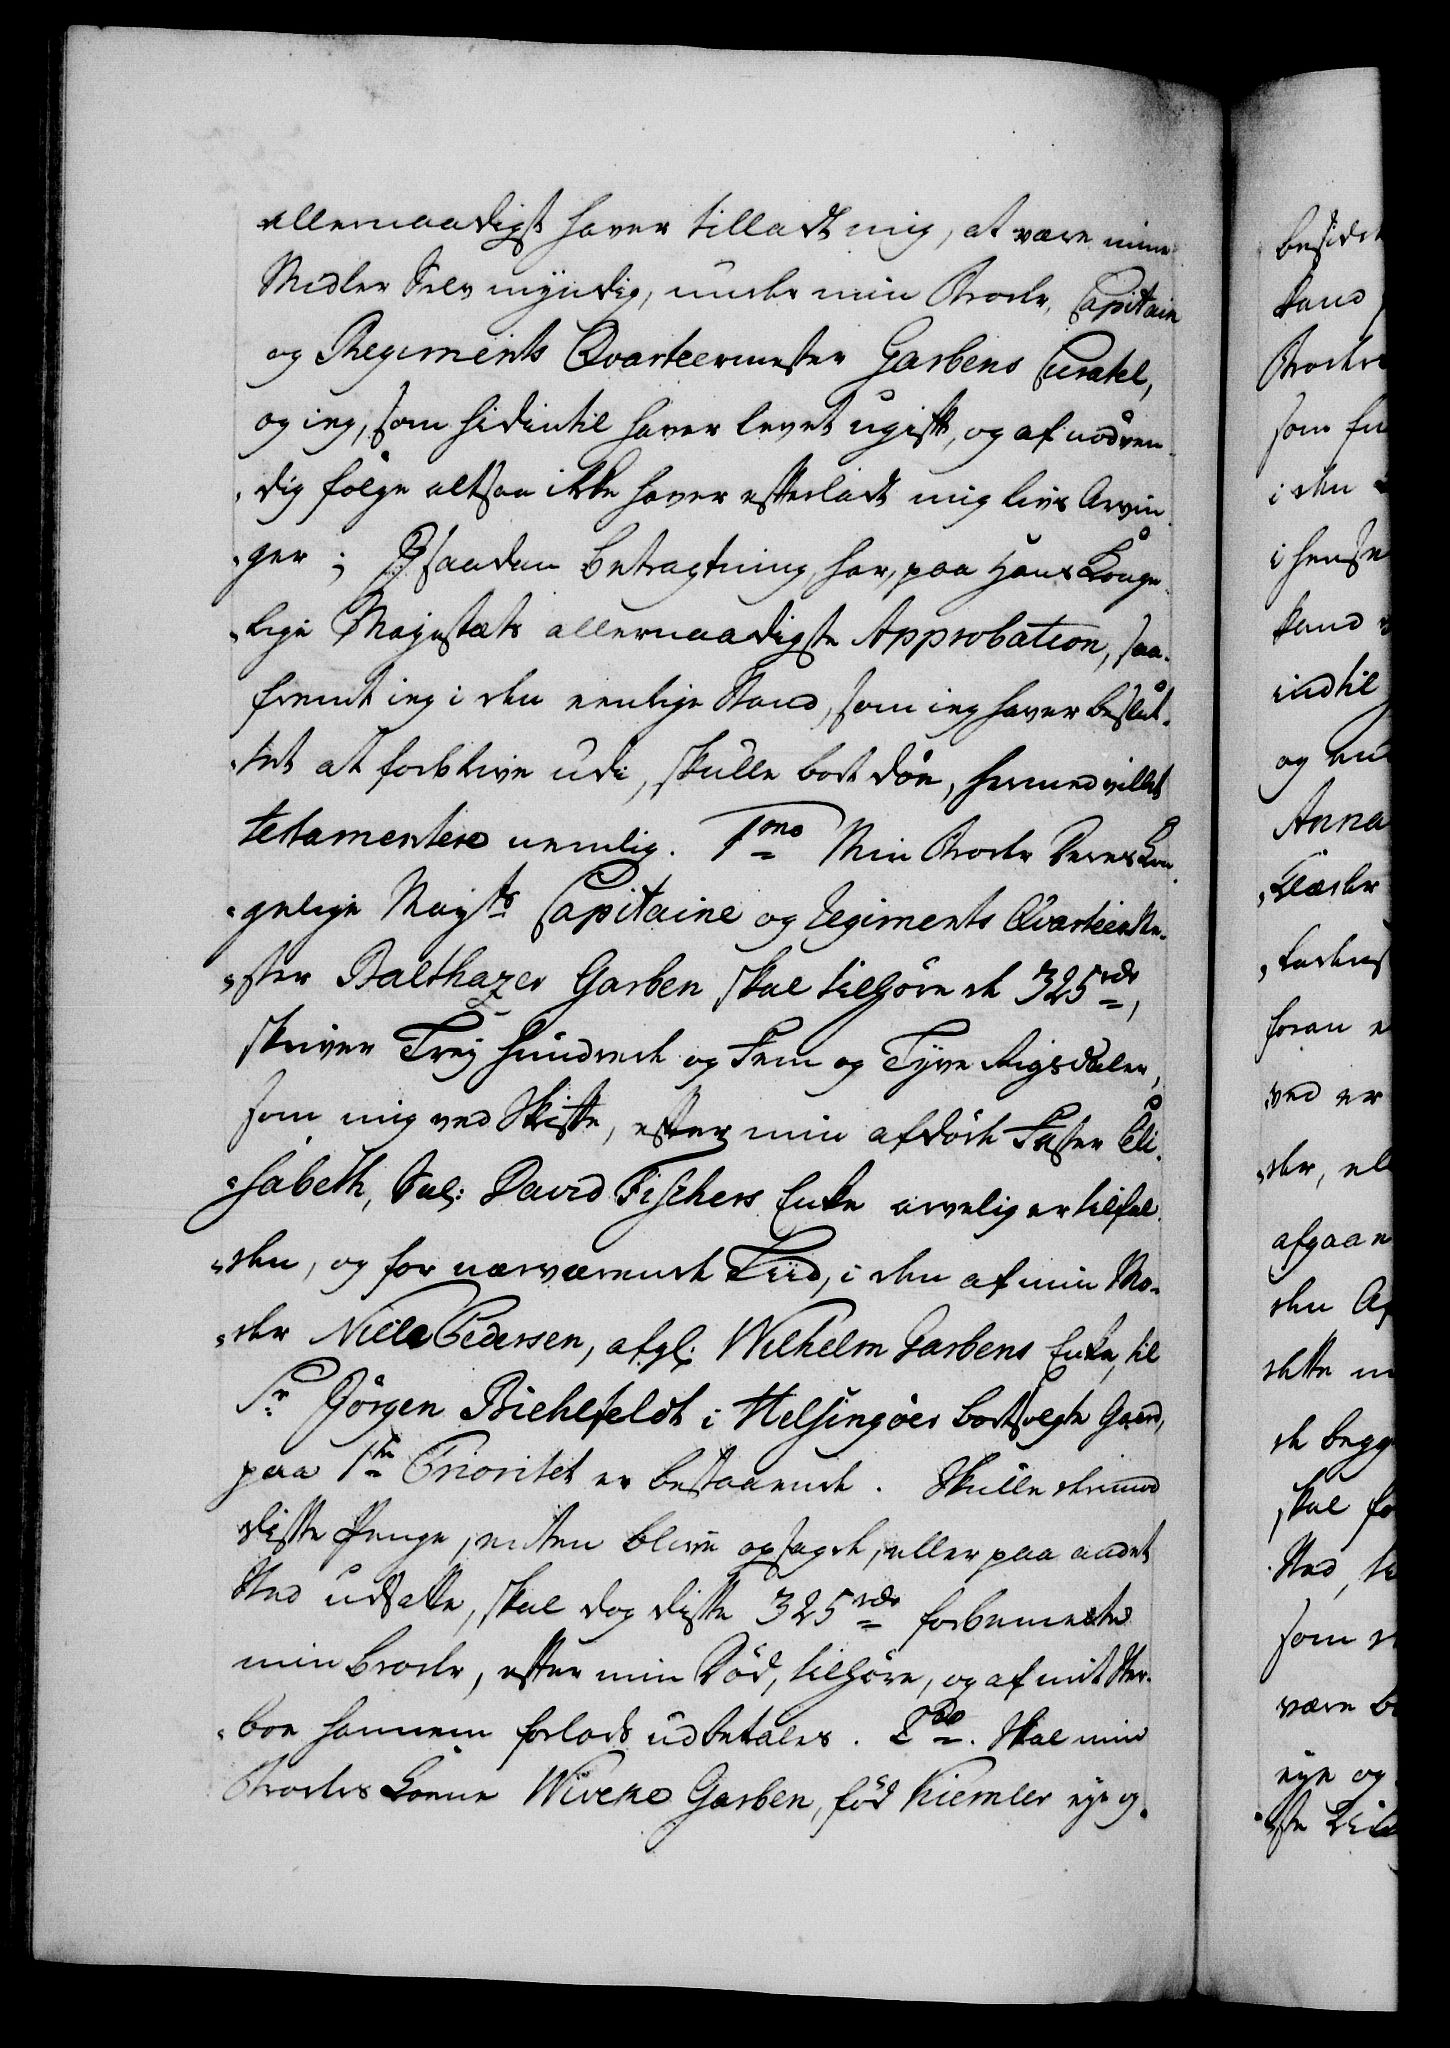 allernaadigst haver tilladt mig, at være mine
Midler Selv myndig, under min Broder, Capitain
og Regiments Qvarteermester Garbens Curatel,
og ieg, som hidintil haver levet ugift, og af nødven-
-dig følge altsaa ikke haver efterladt mig livs Arvin-
-ger; J saadan betragtning, har, paa Hans Konge-
-lige Mayestæts allernaadigste Approbation, saa-
fremt ieg i den eenlige Stand, som ieg haver beslut-
-tet at forblive udi, skulle bort döe, hermed villet
testamentere nemlig. 1mo Min Broder Deres Kon-
-gelige Mayts Capitaine og Regiments Qvarteer Me-
-ster Balthazer Garben skal tilhøre de 325 rdr,
skriver Trey hundrede og Fem og Tyve Rigsdaler,
som mig ved Skifte, efter min afdøde Faster Eli-
-sabeth, Sal: David Fischers Enke arvelig er tilfal-
-den, og for nærværende Tiid, i den af min Mo-
-der Nille Pedersen, afgl: Wilhelm Garbens Enke, til
Sr Jörgen Biehlfeldt i Helsingöer bortsolgte Gaard,
paa 1te Prioritet er bestaaende. Skulle derimod
disse Penge, enten blive opsagde, eller paa andet
Sted udsatte, skal dog disse 325 rdr forbemeldte
min broder, efter min Död, tilhøre, og af mit Ster-
-boe hannem forlods udbetales. 2do. Skal min
Broders Kone Wiveke Garben, föd Kiemler eye og
besidde
kand
Broder
som
i den
i hense
kand
indtil
og
Anna
Klæder
foran
ved er
-der,
afgaae
den
dette
de begge
skal
Sted,
som
være
eye og